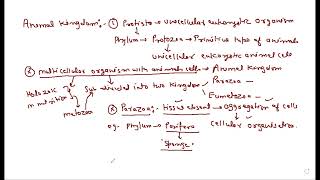 Animal Kingdom:- ① Protista → Unicellular eukaryotic organism
Phylum → Protozoa → Primitive type of animals
Unicellular eukaryotic animal cells.
② multicellular organism with animal cells → Animal Kingdom
Holozoic in nutrition
metazoa
Sub divided into two Kingdom
Parazoa
Eumetazoa
③ Parazoa:- tissue absent → Aggregation of cells
eg. Phylum → Porifera
Cellular organisation.
Sponge